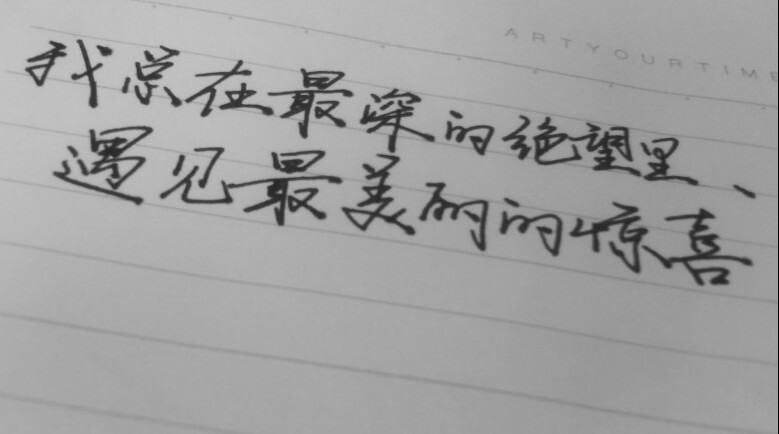 ARTYOURTIME
我总在最深的绝望里、
遇见最美丽的惊喜